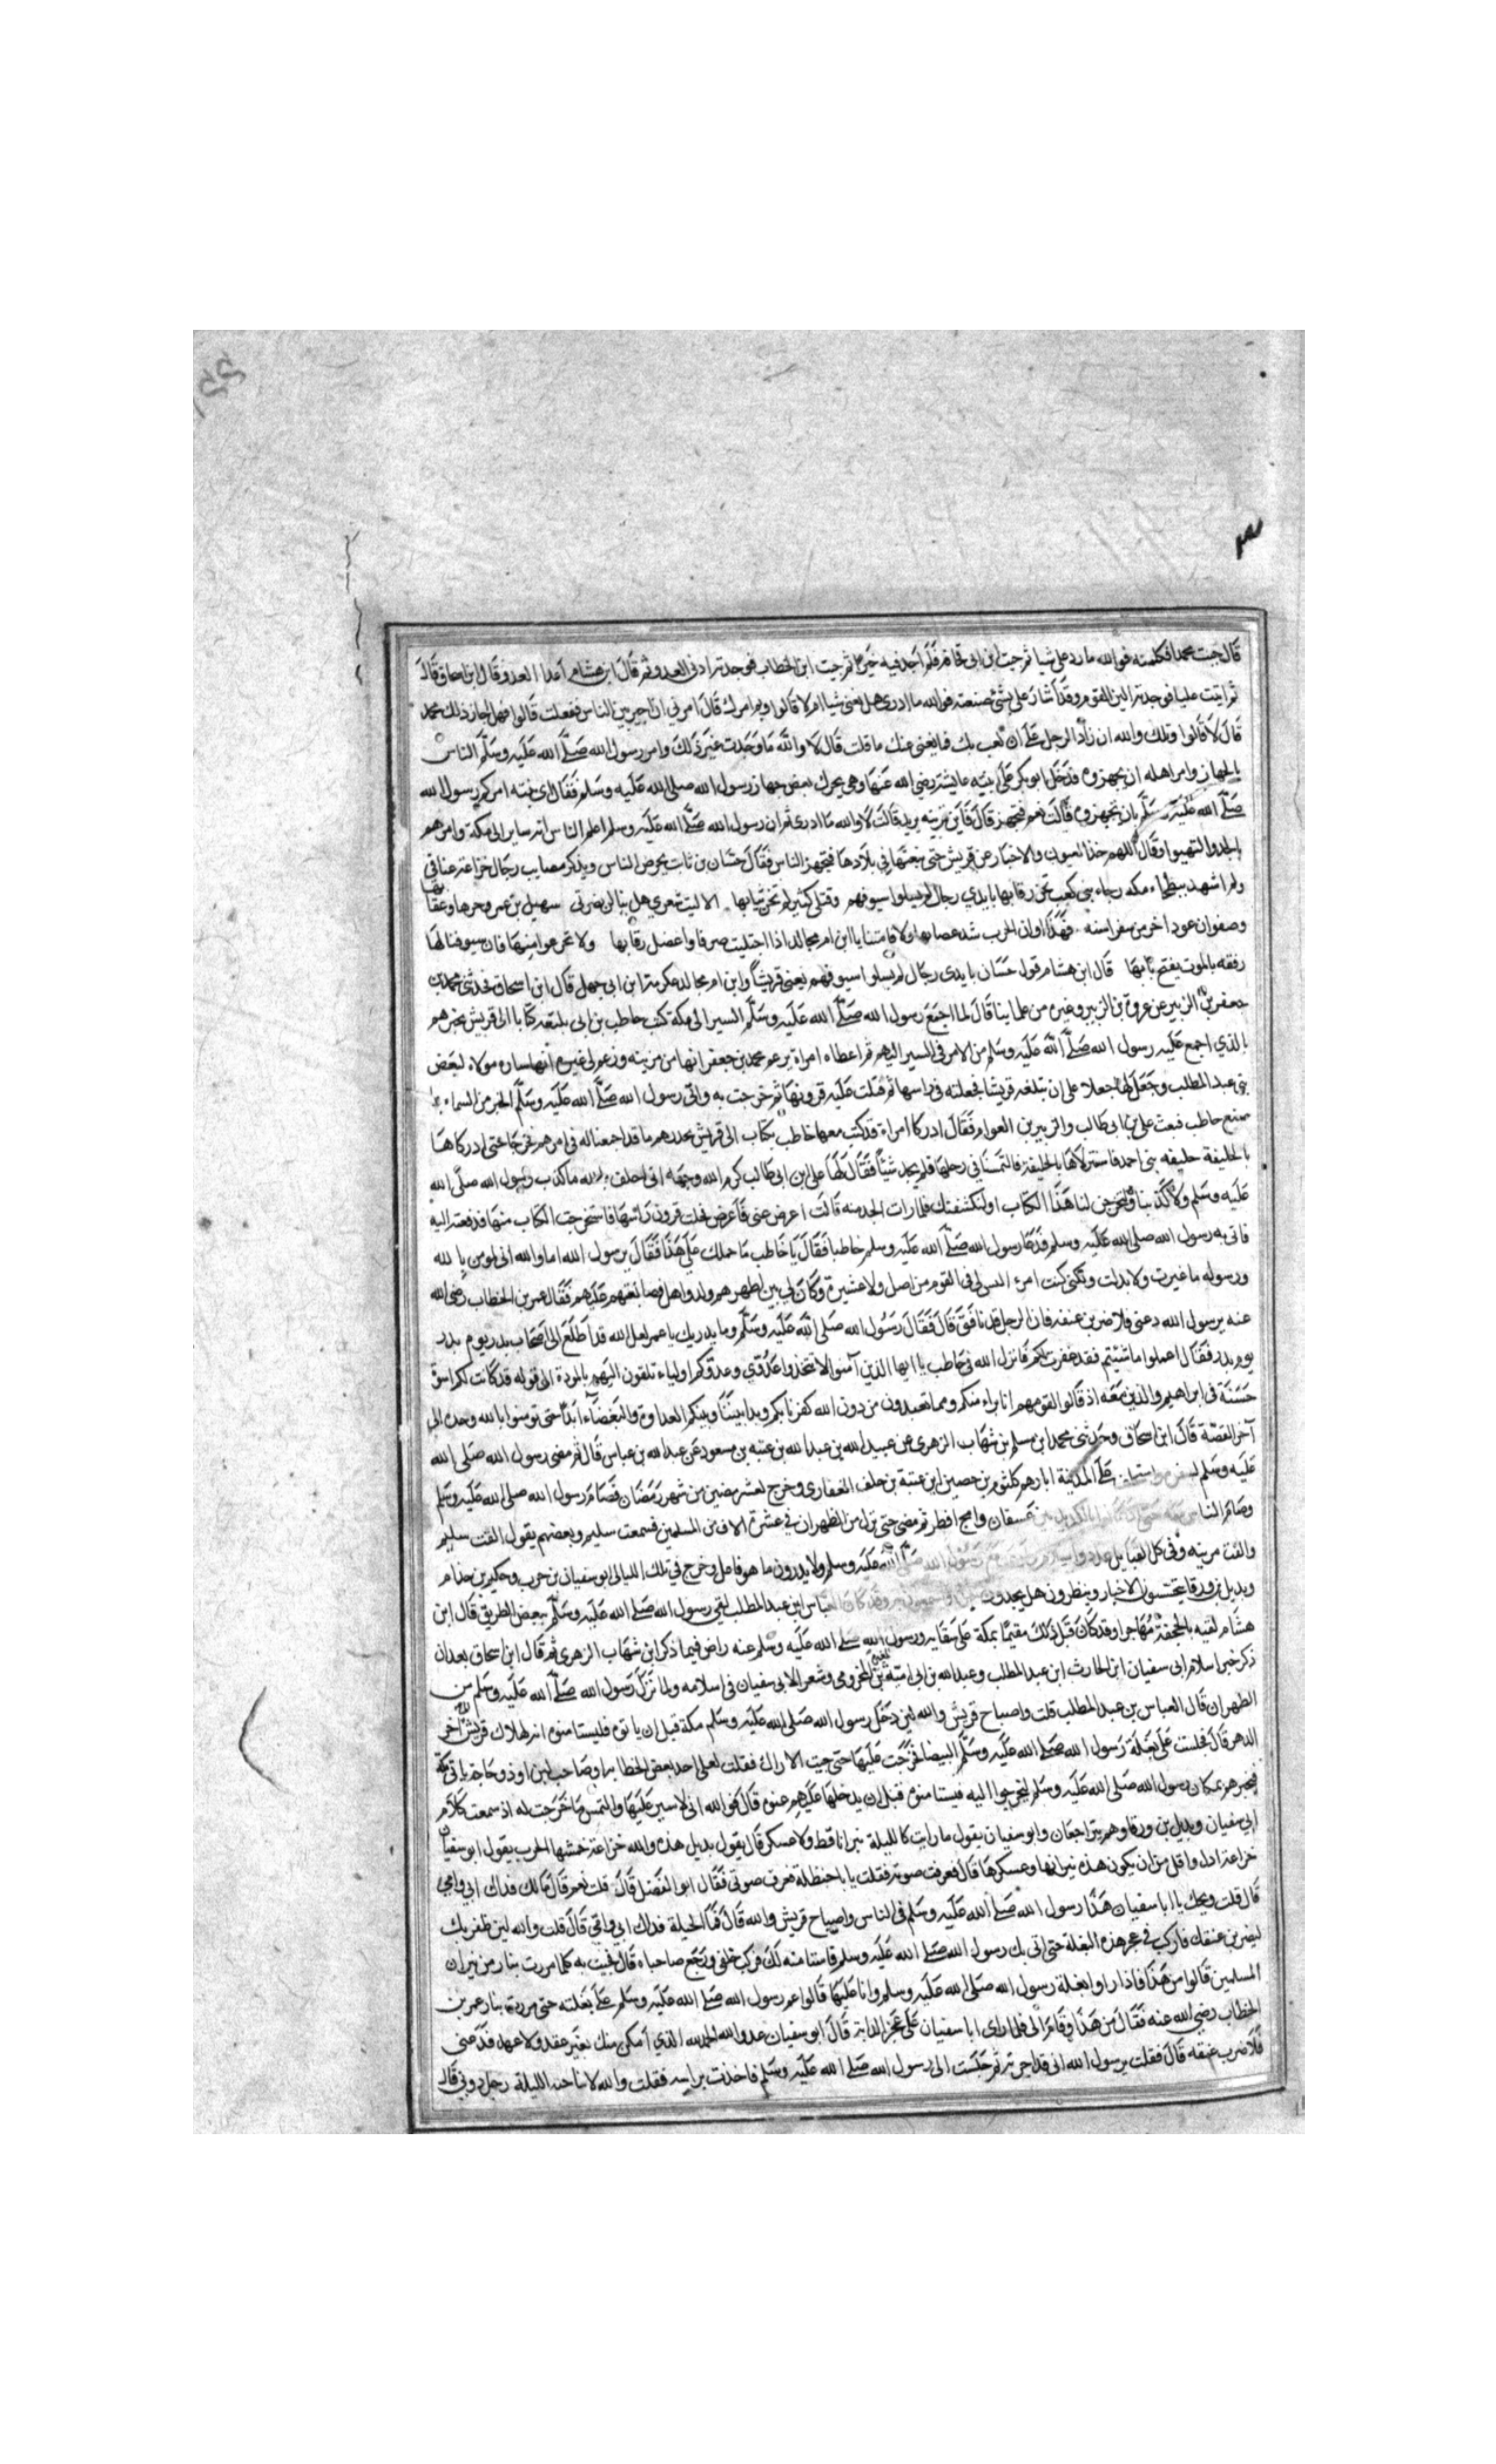 قال جيت محمدا فكلمته فوالله ما رد على شيا ثم جيت ابن ابى قحافه فلم اجد فيه خيرا ثم جيت ابن الخطاب فوجدته ادنى العدو ثم قال ابن هشام اعدا العدو قال ابن اسحاق قال
ثم اتيت عليا فوجدته الين القوم وقد اشار على بشئ صنعته فوالله ما ادرى هل يغنى شيا ام لا قالوا وبم امرك قال امرني ان اجير بين الناس ففعلت قالوا فهل اجاز ذلك محمد
قال لا قالوا ويلك والله ان زاد الرجل على ان لعب بك فما يغنى عنك ما قلت قال لا والله ما وجدت غير ذلك وامر رسول الله صلى الله عليه وسلم الناس
بالجهاز وامر اهله ان يجهزوه فدخل ابو بكر على ابنته عايشة رضي الله عنها وهي تحرك بعض جهاز رسول الله صلى الله عليه وسلم فقال اى بنيه امركم رسول الله
صلى الله عليه وسلم بان تجهزوه قالت نعم فتجهز قال فاين ترينه يريد قالت لا والله ما ادرى ثم ان رسول الله صلى الله عليه وسلم اعلم الناس انه ساير الى مكة وامرهم
بالجد والتهيوا وقال اللهم خذ العيون والاخبار عن قريش حتى نبغتها في بلادها فتجهز الناس فقال حسان بن ثابت يحرض الناس ويذكر مصايب رجال خزاعة عناني
ولم اشهد ببطحاء مكه رجاء بنى كعب تحز رقابها بايدي رجال لم يسلوا سيوفهم وقتلى كثير لم تجن ثيابها الا ليت شعري هل ينالن نصرتى سهيل بن عمرو حرها وعقابها
وصفوان عودا خر من سفر استه فهذا اوان الحرب شد عصابها ولا تامننا يا ابن ام مجالد اذا احتلبت صرفا واعضل رقابها ولا تجزعوا منها فان سيوفنا لها
رفقه بالموت يفتح بابها قال ابن هشام قول حسان بايدى رجال لم يسلوا سيوفهم يعنى قريشا وابن ام مجالد عكرمة ابن ابى جهل قال ابن اسحاق فحدثنى محمد بن
جعفر بن الزبير عن عروة بن الزبير وغيره من علماينا قال لما اجمع رسول الله صلى الله عليه وسلم السير الى مكة كتب حاطب بن ابى بلتعه كتابا الى قريش يخبرهم
بالذي اجمع عليه رسول الله صلى الله عليه وسلم من الامر فى السير اليهم ثم اعطاه امراة يزعم محمد بن جعفر انها من مزينه وزعم لى غيره انها ساره مولاه لبعض
بنى عبد المطلب وجعل لها جعلا على ان تبلغه قريشا فجعلته فى راسها ثم فتلت عليه قرونها ثم خرجت به واتى رسول الله صلى الله عليه وسلم الخبر من السماء بما
صنع حاطب فبعث على بن ابى طالب والزبير بن العوام فقال ادركا امراة قد كتب معها حاطب بكتاب الى قريش يحذرهم ما قد اجمعنا له فى امرهم فخرجا حتى ادركاها
بالخليفة خليفه بنى احمد فاستنزلاها بالخليفة فالتمسا فى رحلها فلم يجد شيئا فقال لها على ابن ابى طالب كرم الله وجهه انى احلف بالله ما كذب رسول الله صلى الله
عليه وسلم ولا كذبنا ولتخرجن لنا هذا الكتاب او لنكشفنك فلما رات الجد منه قالت اعرض عنى فاعرض فحلت قرون راسها فاستخرجت الكتاب منها فدفعته اليه
فاتى به رسول الله صلى الله عليه وسلم فدعا رسول الله صلى الله عليه وسلم حاطبا فقال يا حاطب ما حملك على هذا فقال يرسول الله اما والله انى لمومن بالله
ورسوله ما غيرت ولا بدلت ولكنى كنت امرء ليس لى فى القوم من اصل ولا عشيرة وكان لى بين اظهرهم ولد واهل فصانعتهم عليهم فقال عمر بن الخطاب رضى الله
عنه يرسول الله دعنى فلاضربن عنقه فان الرجل قد نافق قال فقال رسول الله صلى الله عليه وسلم وما يدريك يا عمر لعل الله قد اطلع الى اصحاب بدر يوم بدر
يوم بدر فقال اعملوا ما شئتم فقد غفرت لكم فانزل الله فى حاطب يا ايها الذين آمنوا لا تتخذوا عدوى وعدوكم اولياء تلقون اليهم بالمودة الى قوله قد كانت لكم اسوة
حسنة فى ابراهيم والذين معه اذ قالوا لقومهم انا براء منكم ومما تعبدون من دون الله كفرنا بكم وبدا بيننا وبينكم العداوة والبغضاء ابدا حتى تومنوا بالله وحده الى
آخر القصة قال ابن اسحاق وحدثنى محمد ابن مسلم بن شهاب الزهرى عن عبيد الله بن عبد الله بن عتبه بن مسعود عن عبد الله بن عباس قال ثم مضى رسول الله صلى الله
عليه وسلم لسفره واستخلف على المدينة ابارهم كلثوم بن حصين ابن عتبة بن خلف الغفارى وخرج لعشر مضين من شهر رمضان فصام رسول الله صلى الله عليه وسلم
وصام الناس معه حتى اذا كانوا بالكديد بين عسفان وامج افطر ثم مضى حتى نزل مر الظهران في عشرة الاف من المسلمين فسمعت سليم وبعضهم يقول الفت سليم
والفت مزينه وفى كل القبايل عدد واسلام رسول الله صلى الله عليه وسلم ولا يدرون ما هو فاعل وخرج في تلك الليالى ابو سفيان بن حرب وحكيم بن حزام
وبديل بن ورقا يتحسسون الاخبار وينظرون هل يجدون وقد كان العباس ابن عبد المطلب لقى رسول الله صلى الله عليه وسلم ببعض الطريق قال ابن
هشام لقيه بالجحفة مهاجرا وقد كان قبل ذلك مقيما بمكة على سقايه ورسول الله صلى الله عليه وسلم عنه راض فيما ذكر ابن شهاب الزهرى ثم قال ابن اسحاق بعد ان
ذكر خبر اسلام ابى سفيان ابن الحارث ابن عبد المطلب وعبد الله بن ابى امية بن المخزومى وشعر الابى سفيان فى اسلامه ولما نزل رسول الله صلى الله عليه وسلم من
الظهران قال العباس بن عبد المطلب قلت واصباح قريش والله لين دخل رسول الله صلى الله عليه وسلم مكة قبل ان ياتوه فليستامنوه انه لهلاك قريش آخر
الدهر قال فجلست على بغلة رسول الله صلى الله عليه وسلم البيضا فخرجت عليها حتى جيت الاراك فقلت لعلى اجد بعض الحطابه او صاحب لبن او ذو حاجة ياتى مكة
فيخبرهم بمكان رسول الله صلى الله عليه وسلم ليخرجوا اليه فيستامنوه قبل ان يدخلها عليهم عنوه قال فوالله انى لاسير عليها والتمس ما خرجت له اذ سمعت كلام
ابى سفيان وبديل بن ورقا وهم يتراجعان وابو سفيان يقول ما رايت كالليلة نيرانا قط ولا عسكر قال يقول بديل هذه والله خزاعة حمشها الحرب يقول ابو سفيان
خزاعة اذل واقل من ان يكون هذه نيرانها وعسكرها قال فعرفت صوته فقلت يا باحنظلة فعرف صوتى فقال ابو الفضل قال قلت نعم قال مالك فداك ابى وامي
قال قلت ويحك يا ابا سفيان هذا رسول الله صلى الله عليه وسلم فى الناس واصباح قريش والله قال فما الحيلة فداك ابى وامي قال قلت والله لين ظفر بك
ليضربن عنقك فاركب فى عجز هذه البغلة حتى اتى بك رسول الله صلى الله عليه وسلم فاستامنه لك فركب خلفى ورجع صاحباه قال فجيت به كلما مررت بنار من نيران
المسلمين قالوا من هذا فاذا راوا بغلة رسول الله صلى الله عليه وسلم وانا عليها قالوا عم رسول الله صلى الله عليه وسلم على بغلته حتى مررت بنار عمر بن
الخطاب رضي الله عنه فقال من هذا وقام الى فلما راى ابا سفيان على عجز الدابة قال ابو سفيان عدو الله الحمد لله الذي امكن منك بغير عقد ولا عهد فدعنى
فلاضرب عنقه قال فقلت يرسول الله انى قد اجرته ثم جلست الى رسول الله صلى الله عليه وسلم فاخذت براسه فقلت والله لا يناجيه الليلة رجل دونى قال